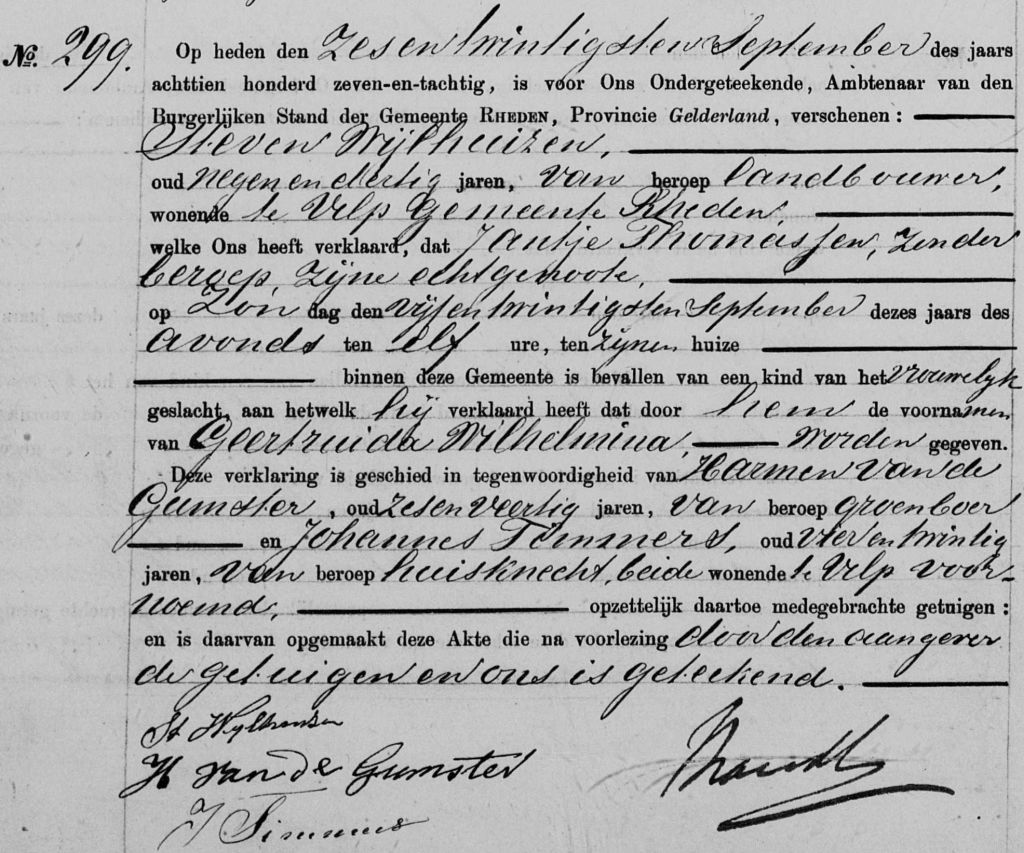 No. 299. Op heden den zesentwintigsten September des jaars
achttien honderd zeven-en-tachtig, is voor Ons Ondergeteekende, Ambtenaar van den
Burgerlijken Stand der Gemeente RHEDEN, Provincie Gelderland, verschenen:
Steven Wijlhuizen,
oud negenendertig jaren, van beroep landbouwer,
wonende te Velp Gemeente Rheden
welke Ons heeft verklaard, dat Jantje Thomassen, zonder
beroep, zijne echtgenoote,
op Zon dag den vijfentwintigsten September dezes jaars des
avonds ten elf ure, ten zijnen huize
binnen deze Gemeente is bevallen van een kind van het vrouwelijk
geslacht, aan hetwelk hij verklaard heeft dat door hem de voornamen
van Geertruida Wilhelmina, worden gegeven.
Deze verklaring is geschied in tegenwoordigheid van Harmen van de
Gumster, oud zesenveertig jaren, van beroep groenboer
en Johannes Timmers, oud vierentwintig
jaren, van beroep huisknecht, beide wonende te Velp voor-
noemd, opzettelijk daartoe medegebrachte getuigen:
en is daarvan opgemaakt deze Akte die na voorlezing door den aangever
de getuigen en ons is geteekend.
St Wylhuizen
H van de Gumster
J Timmers